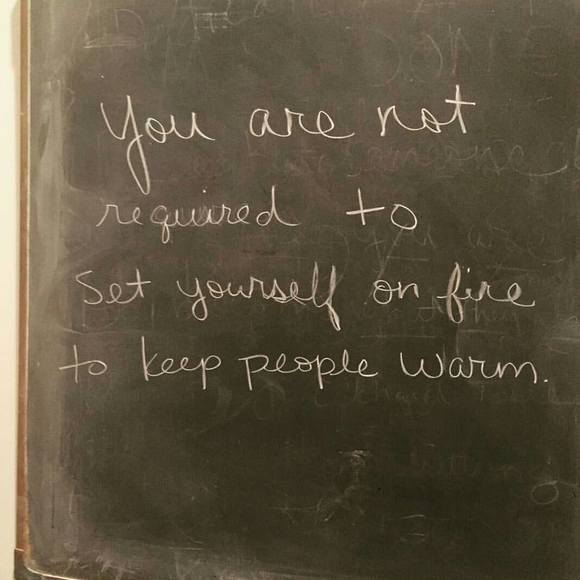 You are not
required to
Set yourself on fire
to keep people warm.